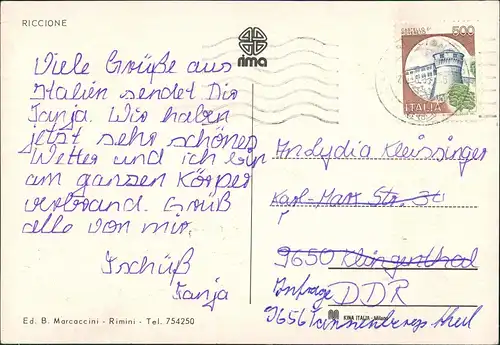 RICCIONE
rima
500
ITALIA
Viele Grüße aus
Italien sendet Dir
Tanja. Wir haben
jetzt sehr schönes
Wetter und ich bin
am ganzen Körper
verbrand. Grüß
alle von mir.
Tschüß
Tanja
Andydia Kleissinger
Karl-Marx Str. 30
9650 Klingenthal
Anfrage
DDR
9656
Ed. B. Marcaccini - Rimini - Tel. 754250
KINA ITALIA - Milano